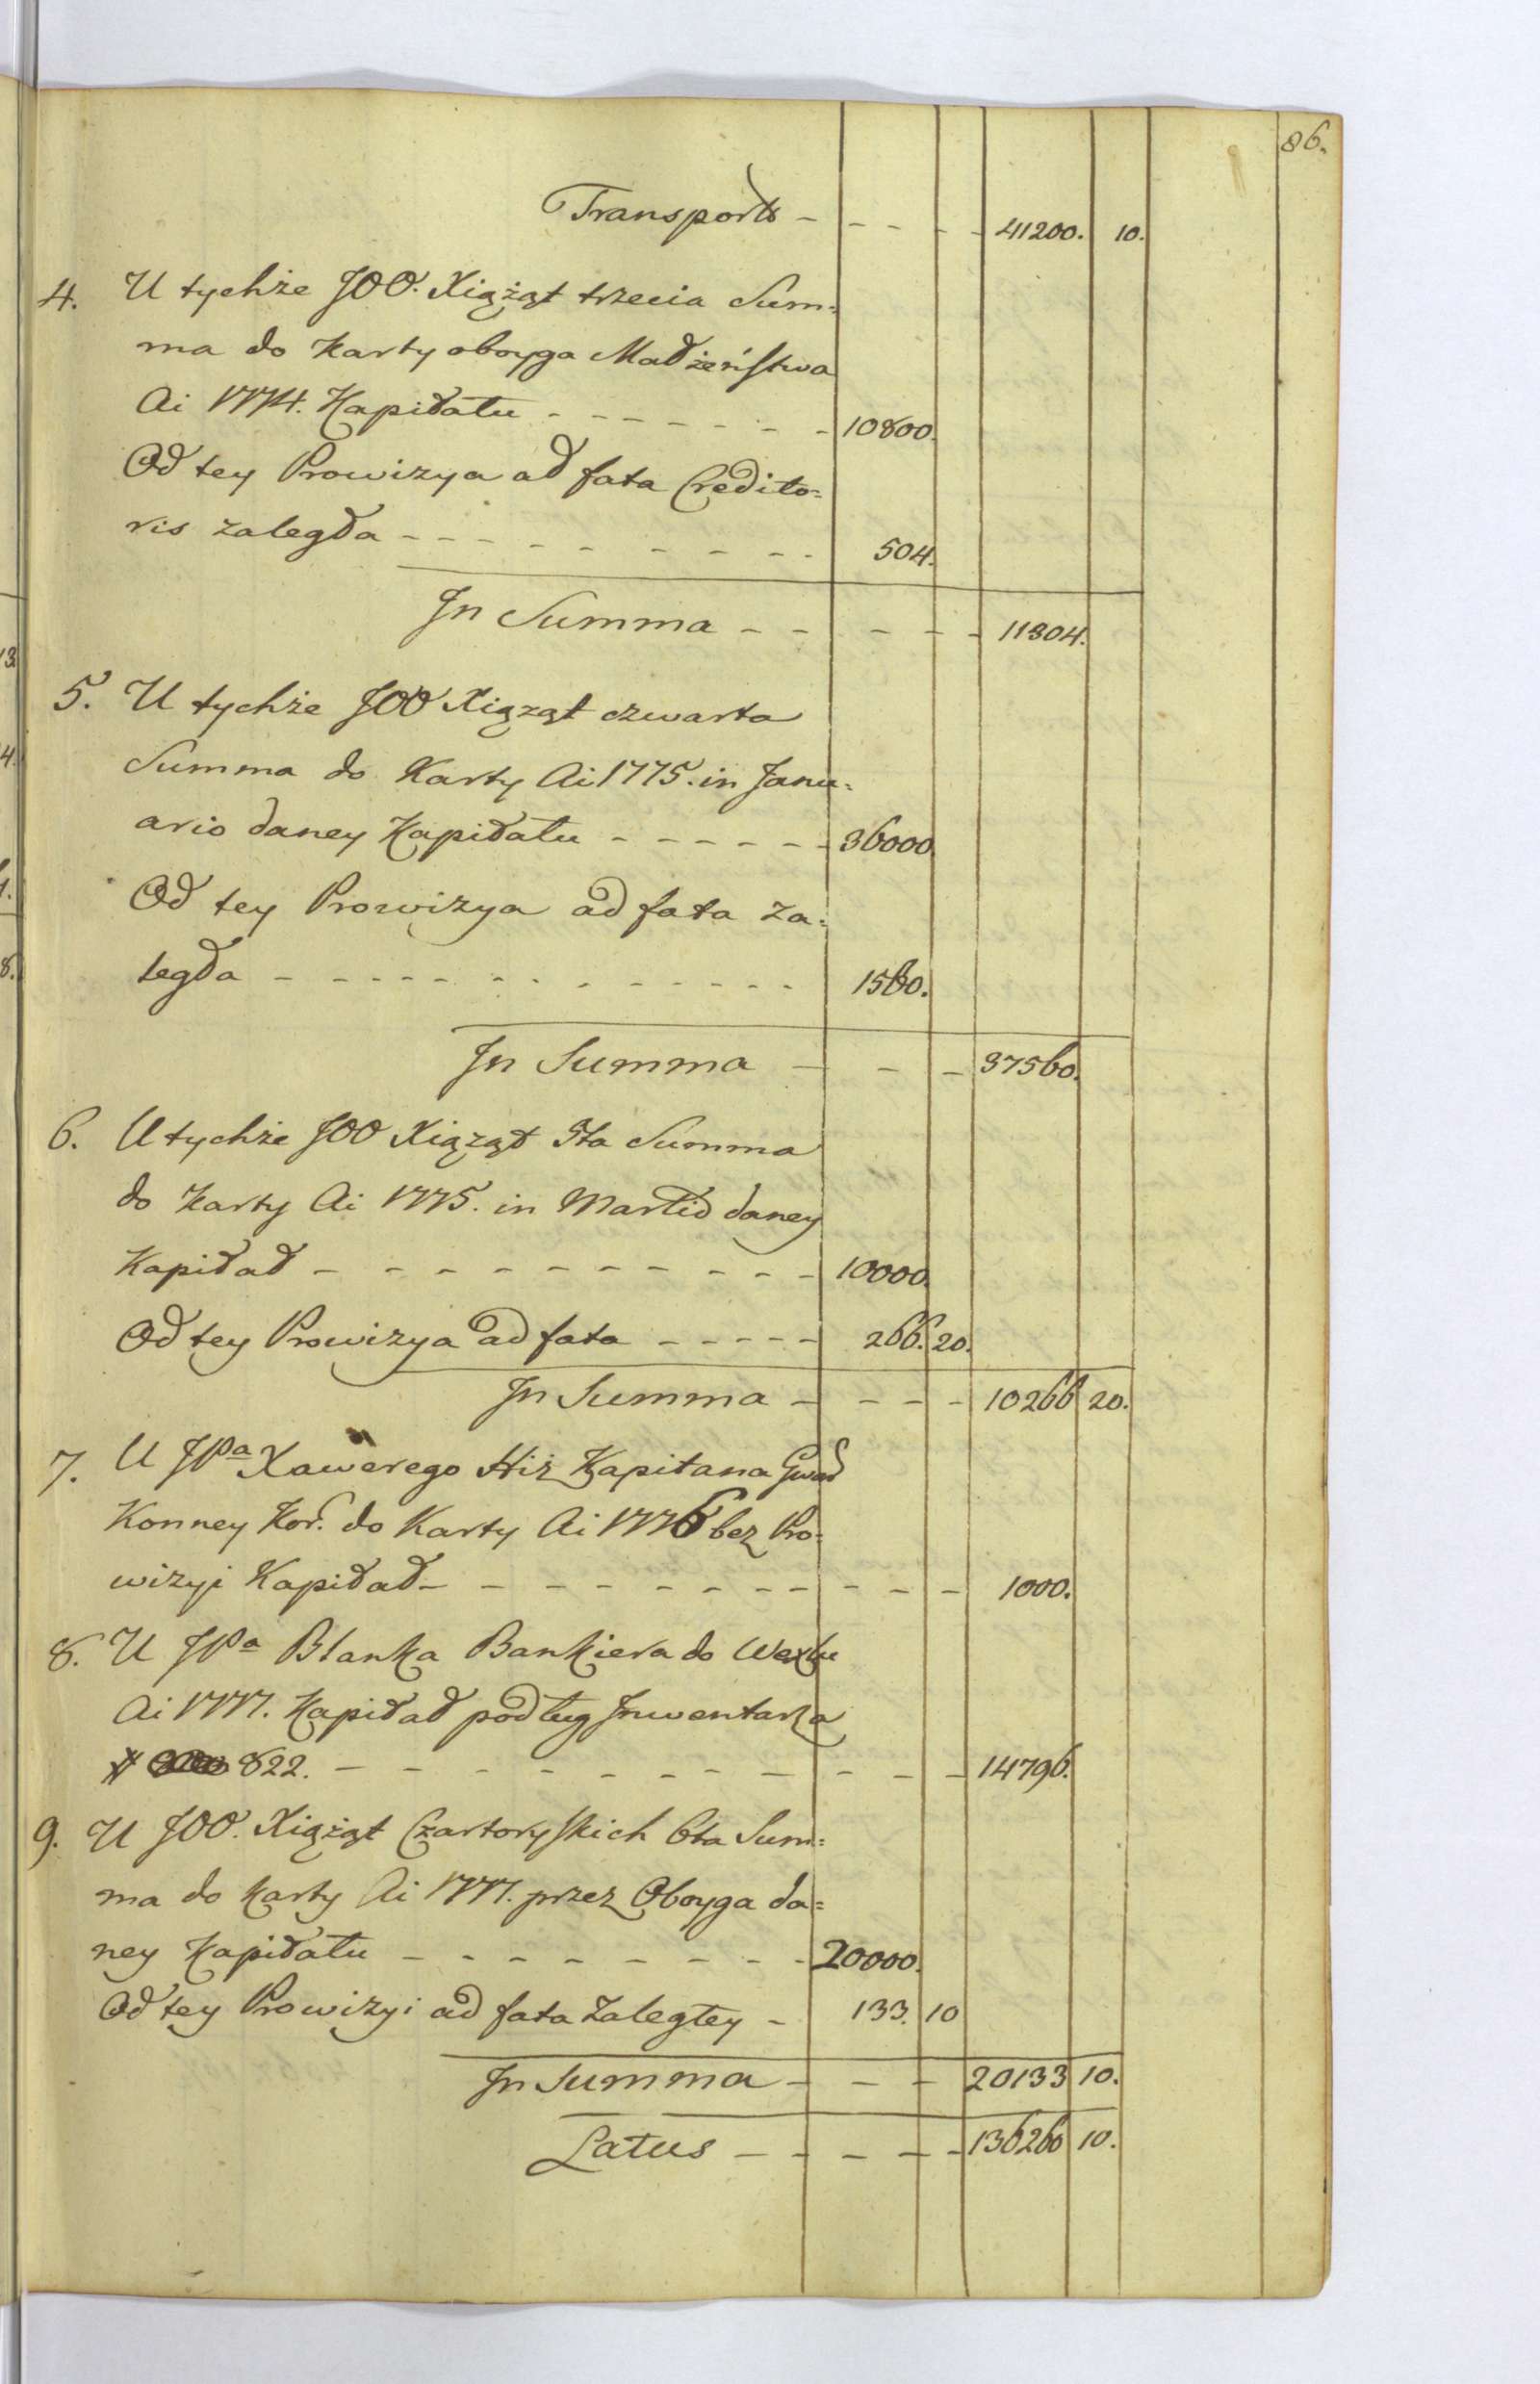 86.
Transport - - - - - 41200. 10.
4. U tychże JOO. Xiążąt trzecia Sum=
ma do Karty oboyga Małżeństwa
Ai 1774. Kapitału - - - - - - 10800.
Od tey Prowizya ad fata Credito=
ris zaległa - - - - - - - - - 504.
Jn Summa - - - - - 11304.
5. U tychże JOO Xiążąt czwarta
Summa do Karty Ai 1775. in Janu=
ario daney Kapitału - - - - - 36000
Od tey Prowizya ad fata za=
legła - - - - - - - - - - - 1560.
Jn Summa - - - 37560.
6. U tychże JOO Xiążąt 5ta Summa
do Karty Ai 1775. in Martio daney
Kapitał - - - - - - - - - - 10000.
Od tey Prowizya ad fata - - - - - 266. 20.
Jn Summa - - - - 10266 20.
7. U JPa Xawerego Hiż Kapitana Gwar
Konney Kor. do Karty Ai 1776 bez Pro=
wizyi Kapitał - - - - - - - - - - 1000.
8. U JPa Blanka Bankiera do Wexlu
Ai 1777. Kapitał podług Jnwentarza
# 822. - - - - - - - - - - - - 14796.
9. U JOO. Xiążąt Czartoryskich 6ta Sum=
ma do Karty Ai 1777. przez Oboyga da=
ney Kapitału - - - - - - - - 20000.
Od tey Prowizyi ad fata zaległey - 133. 10
Jn Summa - - - 20133 10.
Latus - - - - - 136260 10.